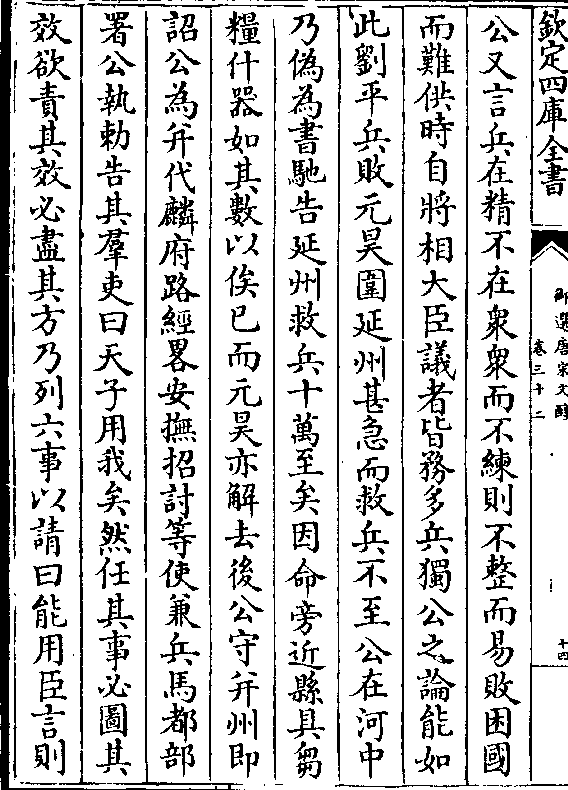 欽定四庫全書
御選唐宋文醇
卷三十二
十四
公又言兵在精不在衆衆而不練則不整而易敗困國
而難供時自將相大臣議者皆務多兵獨公之論能如
此劉平兵敗元昊圍延州甚急而救兵不至公在河中
乃偽為書馳告延州救兵十萬至矣因命旁近縣具芻
糧什器如其數以俟已而元昊亦解去後公守并州即
詔公為并代麟府路經畧安撫招討等使兼兵馬都部
署公執勅告其羣吏曰天子用我矣然任其事必圖其
效欲責其效必盡其方乃列六事以請曰能用臣言則